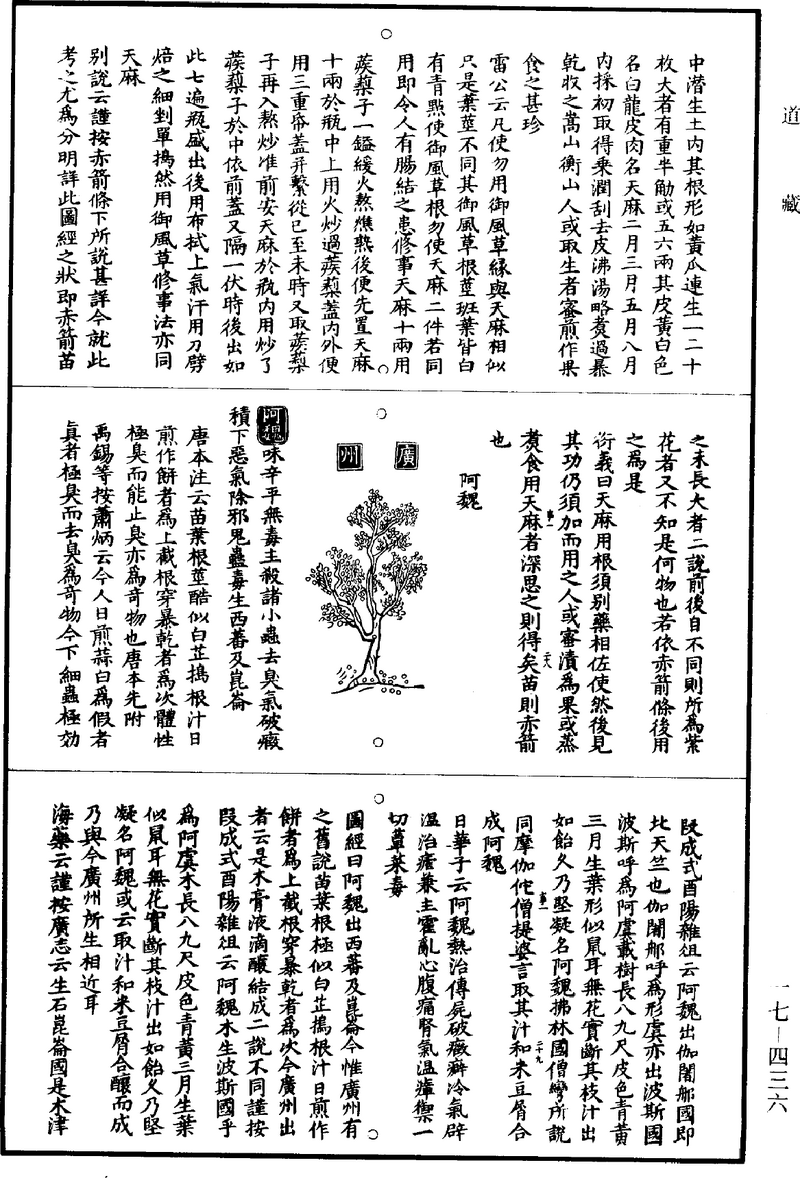 道藏
中潛生土内其根形如黃瓜連生一二十
枚大者有重半觔或五六兩其皮黃白色
名白龍皮肉名天麻二月三月五月八月
内採初取得乘潤刮去皮沸湯略煑過暴
乾收之嵩山衡山人或取生者蜜煎作果
食之甚珍
雷公云凡使勿用御風草縁與天麻相似
只是葉莖不同其御風草根莖班葉皆白
有青㸃使御風草根勿使天麻二件若同
用即令人有腸結之患修事天麻十兩用
蒺藜子一鎰緩火熬燋熟後便先置天麻
十兩於瓶中上用火炒過蒺藜蓋内外便
用三重帋蓋并繫從已至未時又取蒺藜
子再入熬炒准前安天麻於瓶内用炒了
蒺藜子於中依前蓋又隔一伏時後出如
此七遍瓶盛出後用布拭上氣汗用刀劈
焙之細剉單搗然用御風草修事法亦同
天麻
别說云謹按赤箭條下所說甚詳今就此
考之尤爲分明詳此圖經之狀即赤箭苗
之未長大者二說前後自不同則所爲紫
花者又不知是何物也若依赤箭條後用
之爲是
衍義曰天麻用根須别藥相佐使然後見
其功仍須加而用之人或蜜漬爲果或蒸
煑食用天麻者深思之則得矣苗則赤箭
也
阿魏
廣州
阿魏味辛平無毒主殺諸小蟲去臭氣破癥
積下惡氣除邪鬼蠱毒生西蕃及崑崙
唐本注云苗葉根莖酷似白芷搗根汁日
煎作餅者爲上截根穿暴乾者爲次體性
極臭而能止臭亦爲奇物也唐本先附
禹錫等按蕭炳云今人日煎蒜白爲假者
真者極臭而去臭爲奇物今下細蟲極効
段成式酉陽雜俎云阿魏出伽闍郍國即
北天竺也伽闍郍呼爲形虞亦出波斯國
波斯呼爲阿虞載樹長八九尺皮色青黃
三月生葉形似鼠耳無花實斷其枝汁出
如飴久乃堅凝名阿魏拂林國僧彎所說
同摩伽佗僧提婆言取其汁和米豆屑合
成阿魏
日華子云阿魏熱治傳屍破癥癖冷氣辟
温治瘧兼主霍亂心腹痛腎氣温瘴禦一
切蕈菜毒
圖經曰阿魏出西蕃及崑崙今惟廣州有
之舊說苗葉根極似白芷搗根汁日煎作
餅者爲上截根穿暴乾者爲次今廣州出
者云是木膏液滴釀結成二說不同謹按
段成式酉陽雜俎云阿魏木生波斯國乎
爲阿虞木長八九尺皮色青黃三月生葉
似鼠耳無花實斷其枝汁出如飴久乃堅
凝名阿魏或云取汁和米豆屑合釀而成
乃與今廣州所生相近耳
海藥云謹按廣志云生石崑崙國是木津
一七—四三六